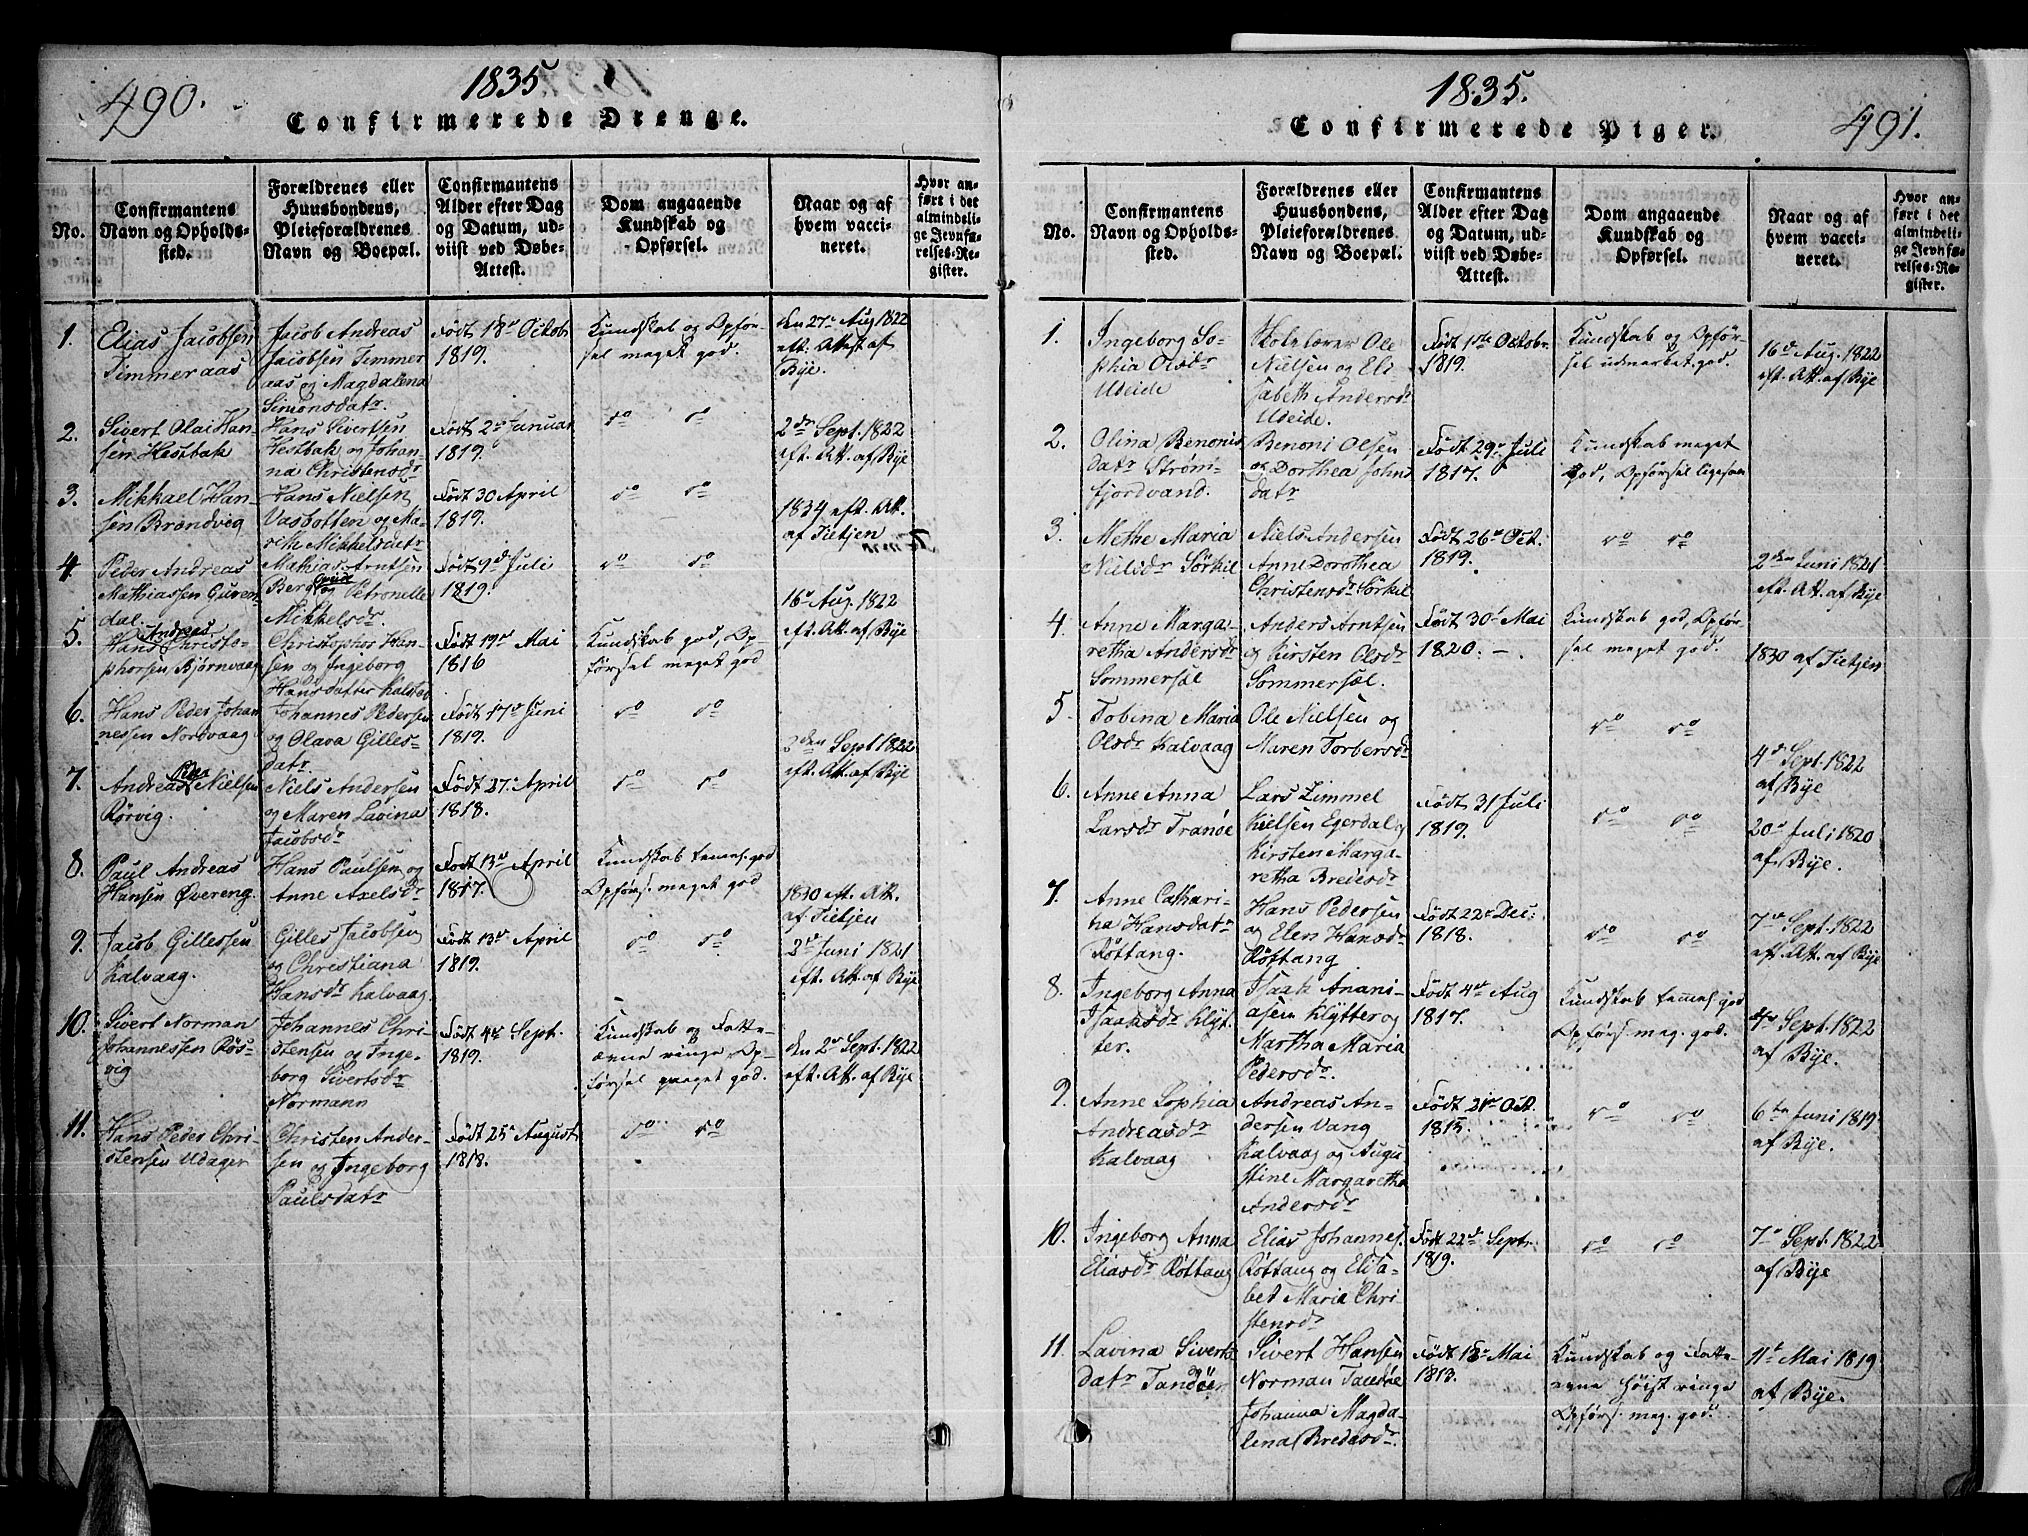 490.
1835
Confirmerede Drenge.
No.
Confirmantens
Navn og Opholds-
sted.
Forældrenes eller
Huusbondens,
Pleieforældrenes
Navn og Boepæl.
Confirmantens
Alder efter Dag
og Datum, ud-
viist ved Døbe-
Attest.
Dom angaaende
Kundskab og
Opførsel.
Naar og af
hvem vacci-
neret.
Hvor an-
ført i det
almindeli-
ge Jevnfø-
relses-Re-
gister.
1.
Elias Jacobsen
Timmeraas
Jacob Andreas
Jacobsen Timmer
aas og Magdalena
Simonsdatr.
Født 18de Octobr
1819.
Kundskab og Opfør-
sel meget god.
den 27de Aug 1822
eft. Attest af
Bye.
2.
Sivert Olai Han-
sen Hestbak
Hans Sivertsen
Hestbak og Johan-
na Christensdr
Født 2den Januar
1819.
do do
2den Sept. 1822
eft. Att. af Bye
3.
Mikkael Han-
sen Brandvig
Hans Nielsen
Vasbotten og Ma-
rethe Mikkelsdatr
Født 30 April
1819.
do do
1834 eft. Att.
af Tietjen
4.
Peder Andreas
Mathiassen Guven-
dal.
Mathias Arntsen
Berg og Petronelle
Mikkelsdr.
Født 9de Juli
1819.
do do
16de Aug. 1822
eft. Att. af Bye
5.
Andreas
Hans Christo-
phersen Bjørnvaag
Christopher Han-
sen og Ingeborg
Hansdatter
Født 19de Mai
1816
Kundskab god, Op-
førsel meget god
6.
Hans Peder Johan
nessen Nordvaag
Johannes Pedersen
og Olava Gilles-
datr
Født 17de Juni
1819.
do do
2den Sept 1822
eft. Att. af Bye
7.
Peder
Andreas Nielsen
Rørvig.
Niels Andersen
og Maren Lavina
Jacobsdr
Født 27de April
1818.
do do
8.
Paul Andreas
Hansen Øvereng.
Hans Paulsen og
Anne Axelsdr
Født 13de April
1817.
Kundskab temel. god
Opførs. meget god
1830 eft. Att.
af Tietjen
9.
Jacob Gillessen
Kalvaag.
Gilles Jacobsen
og Christiana
Hansdr Kalvaag.
Født 13de April
1819.
do do
2den Juni 1821
eft. Att. af Bye
10.
Sivert Norman
Johannessen Røs-
vig
Johannes Chri-
stensen og Inge-
borg Sivertsdr
Normann
Født 4de Sept.
1819.
Kundskab og Fatte-
evne ringe, Op-
førsel meget god.
den 2den Sept. 1822
eft. Att. af Bye
11.
Hans Peder Chri-
stensen Udager
Christen Ander-
sen og Ingeborg
Paulsdatr
Født 25de August
1818.
do do
1835.
Confirmerede Piger.
491.
No.
Confirmantens
Navn og Opholds-
sted.
Forældrenes eller
Huusbondens,
Pleieforældrenes
Navn og Boepæl.
Confirmantens
Alder efter Dag
og Datum, ud-
viist ved Døbe-
Attest.
Dom angaaende
Kundskab og
Opførsel.
Naar og af
hvem vacci-
neret.
Hvor an-
ført i det
almindeli-
ge Jevnfø-
relses-Re-
gister.
1.
Ingeborg So-
phia Olsdr
Udeide
Skolelærer Ole
Nielsen og Eli-
sabeth Andersdr
Udeide.
Født 1ste Octobr.
1819.
Kundskab og Opfør-
sel udmærket god.
16de Aug. 1822
eft. Att. af Bye
2.
Olina Benonis
datr Strøm-
fjordvand.
Benoni Olsen
og Dorthea Johns
datr
Født 29de Juli
1817.
Kundskab meget
god, Opførsel ligesaa
3.
Methe Maria
Nielsdr Sørkil
Niels Andersen
Anne Dorothea
Christensdr Sørkil
Født 26de Oct.
1819.
do do
2den Juni 1821
eft. Att. af Bye
4.
Anne Marga-
retha Andersdr
Sommersæl
Anders Arntsen
og Kirsten Olsdr
Sommersæl.
Født 30de Mai
1820. –
Kundskab god, Opfør-
sel meget god.
1830 af Tietjen
5.
Tobina Maria
Olsdr Kalvaag
Ole Nielsen og
Maren Torbersdr
do do
4de Sept. 1822
af Bye
6.
Anne Anna
Larsdr Tranøe
Lars Zimmel
Nielsen Egerdal og
Kirsten Marga-
retha Bredesdr
Født 31 Juli
1819.
do do
20de Juli 1820
af Bye.
7.
Anne Cathari-
na Hansdatr
Røttang.
Hans Pedersen
og Elen Hansdr
Røttang
Født 22de Dec:
1818.
do do
7de Sept. 1822
eft. Att. af Bye
8.
Ingeborg Anna
Isaaksdr Klyt-
ter.
Isaak Anani-
asen Klytter og
Martha Maria
Pedersdr.
Født 4de Aug
1817.
Kundskab temel. god
Opførs. meg. god.
4de Sept. 1822
af Bye.
9.
Anne Sophia
Andreasdr
Kalvaag
Andreas An-
dersen Vang
Kalvaag og Augu
stine Margaretha
Andersdr
Født 21de Oct.
1815.
do do
6te Juni 1819
af Bye.
10.
Ingeborg Anna
Eliasdr Røttang
Elias Johannes.
Røttang og Elisa-
bet Maria Chri-
stensdr
Født 22de Sept.
1819.
do do
7de Sept. 1822
af Bye
11.
Lavina Siverts
datr Tandøe
Sivert Hansen
Norman og
Johanna Magda-
lena Bredesdr.
Født 18de Mai
1813.
Kundskab og Fatte-
evne høist ringe
Opførs. meg. god.
11te Mai 1819
af Bye.